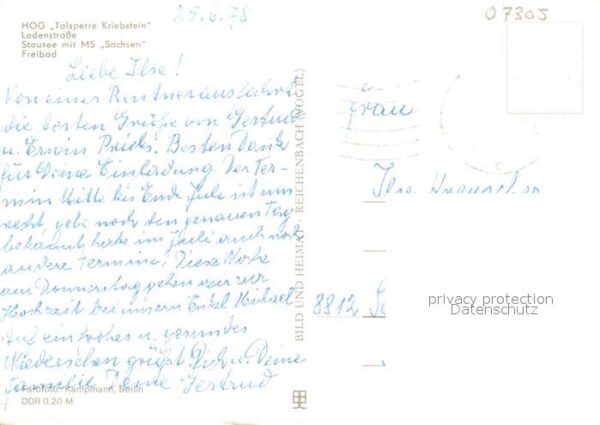 25.6.78
07305
HOG „Talsperre Kriebstein"
Ladenstraße
Stausee mit MS „Sachsen"
Freibad
Liebe Ilse!
Von einer Rentnerausfahrt
die besten Grüße von Gertrud
u. Erwin Besten Dank
für Deine Einladung. Der Ter-
min Mitte bis Ende Juli ist uns
recht, gebe noch den genauen Tag
bekannt habe im Juli auch noch
andere Termine! Diese Woche
am Donnerstag gehen wir zur
Hochzeit bei unsern Enkel Michael
Auf ein frohes u. gesundes
Wiedersehen grüßt Dich u. Deine
Familie Deine Gertrud
Farbfoto-Kampmann, Berlin
DDR 0,20 M
BILD UND HEIMAT · REICHENBACH (VOGTL)
Frau
Ilse
8812
privacy protection
Datenschutz